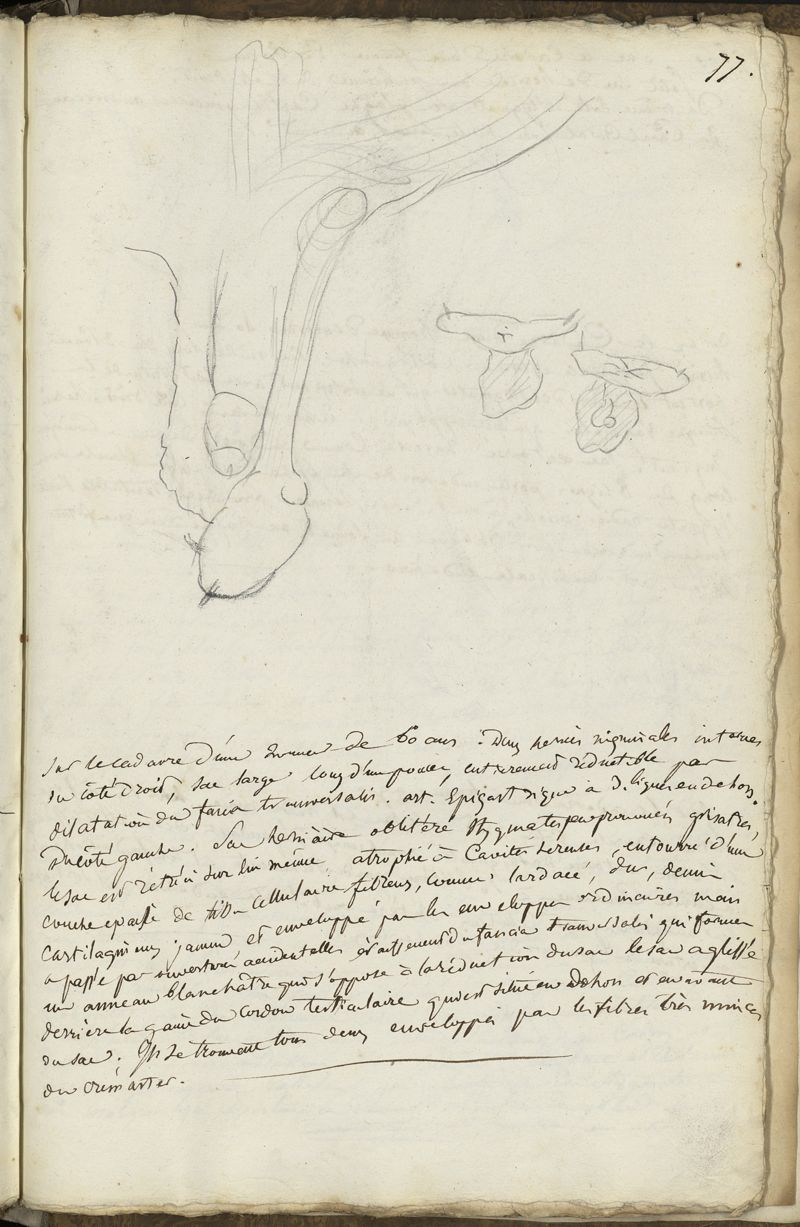 77.
Sur le cadavre d'un homme de 60 ans. Deux hernies inguinales internes
du côté droit, sac large long d'un pouce, entierement réductible par
dilatation du fascia transversalis. art. Epigastrique à 3. lignes en dehors.
Du côté gauche. Sac herniaire oblitéré Stygmates peu prononcés grisatres,
le sac est rétréci sur lui même, atrophié à Cavités Sereuses, entourré d'une
couche epaisse de tissu Cellulaire fibreux, comme lardacé, dur, demi
Cartilagineux, jaune et enveloppé par les enveloppes ordinaires mais
a passé par ouvertures accidentelles du fascia transversalis qui forme
un anneau blanchâtre qui s'oppose à la réduction du sac le sac a glissé
derrière la gaine du cordon testiculaire qui est située en dehors et en avant
du sac. Ils se trouvent tous deux enveloppés par les fibres très minces
du crémaster.